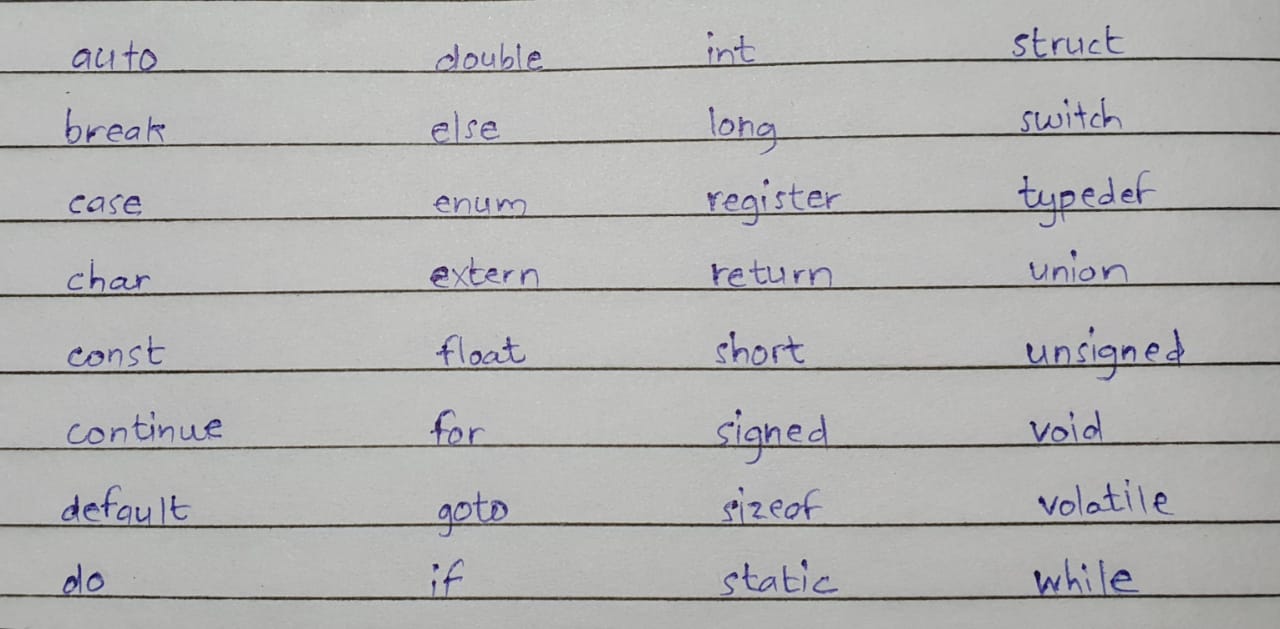 auto double int struct
break else long switch
case enum register typedef
char extern return union
const float short unsigned
continue for signed void
default goto sizeof volatile
do if static while